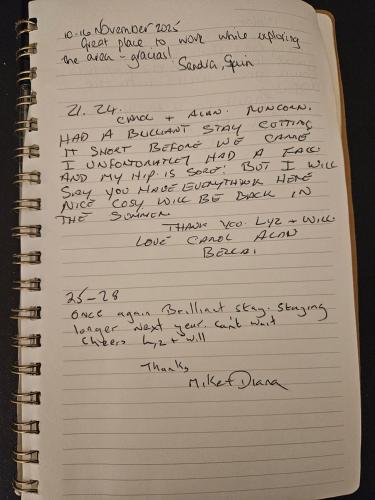 10-16 November 2025
Great place to work while exploring
the area - gracias!
Sandra, Spain
21. 24.
CAROL + ALAN. RUNCORN.
HAD A BRILLIANT STAY CUTTING
IT SHORT BEFORE WE CAME
I UNFORTUNATLEY HAD A FALL
AND MY HIP IS SORE. BUT I WILL
SAY YOU HAVE EVERYTHINK HERE
NICE COSY WILL BE BACK IN
THE SUMMER
THANK YOU. LYZ + WILL
LOVE CAROL ALAN
25-28
Once again Brilliant stay. Staying
longer next year. Can't wait
Cheers Lyz + Will
Thanks
Mike + Diana